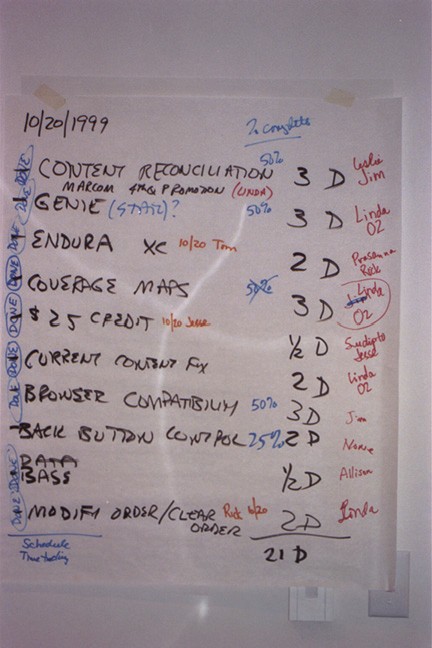 10/20/1999 % Complete
DONE CONTENT RECONCILIATION 50% 3 D Leslie Jim
MARCOM (LINDA)
DONE GENIE (STATIC)? 50% 3 D Linda OZ
DONE ENDURA XC 10/20 Tom 2 D Prasanna Rick
DONE COVERAGE MAPS 50% 3 D Linda OZ
DONE $25 CREDIT 10/20 Jesse 1/2 D Sudipto Jesse
DONE CURRENT CONTENT FX 2 D Linda OZ
DONE BROWSER COMPATIBILIY 50% 3D Jim
BACK BUTTON CONTROL 25% 2 D None
DATA
DONE BASS 1/2 D Allison
DONE MODIFY ORDER/CLEAR Rick 10/20 2D Linda
ORDER
Schedule 21 D